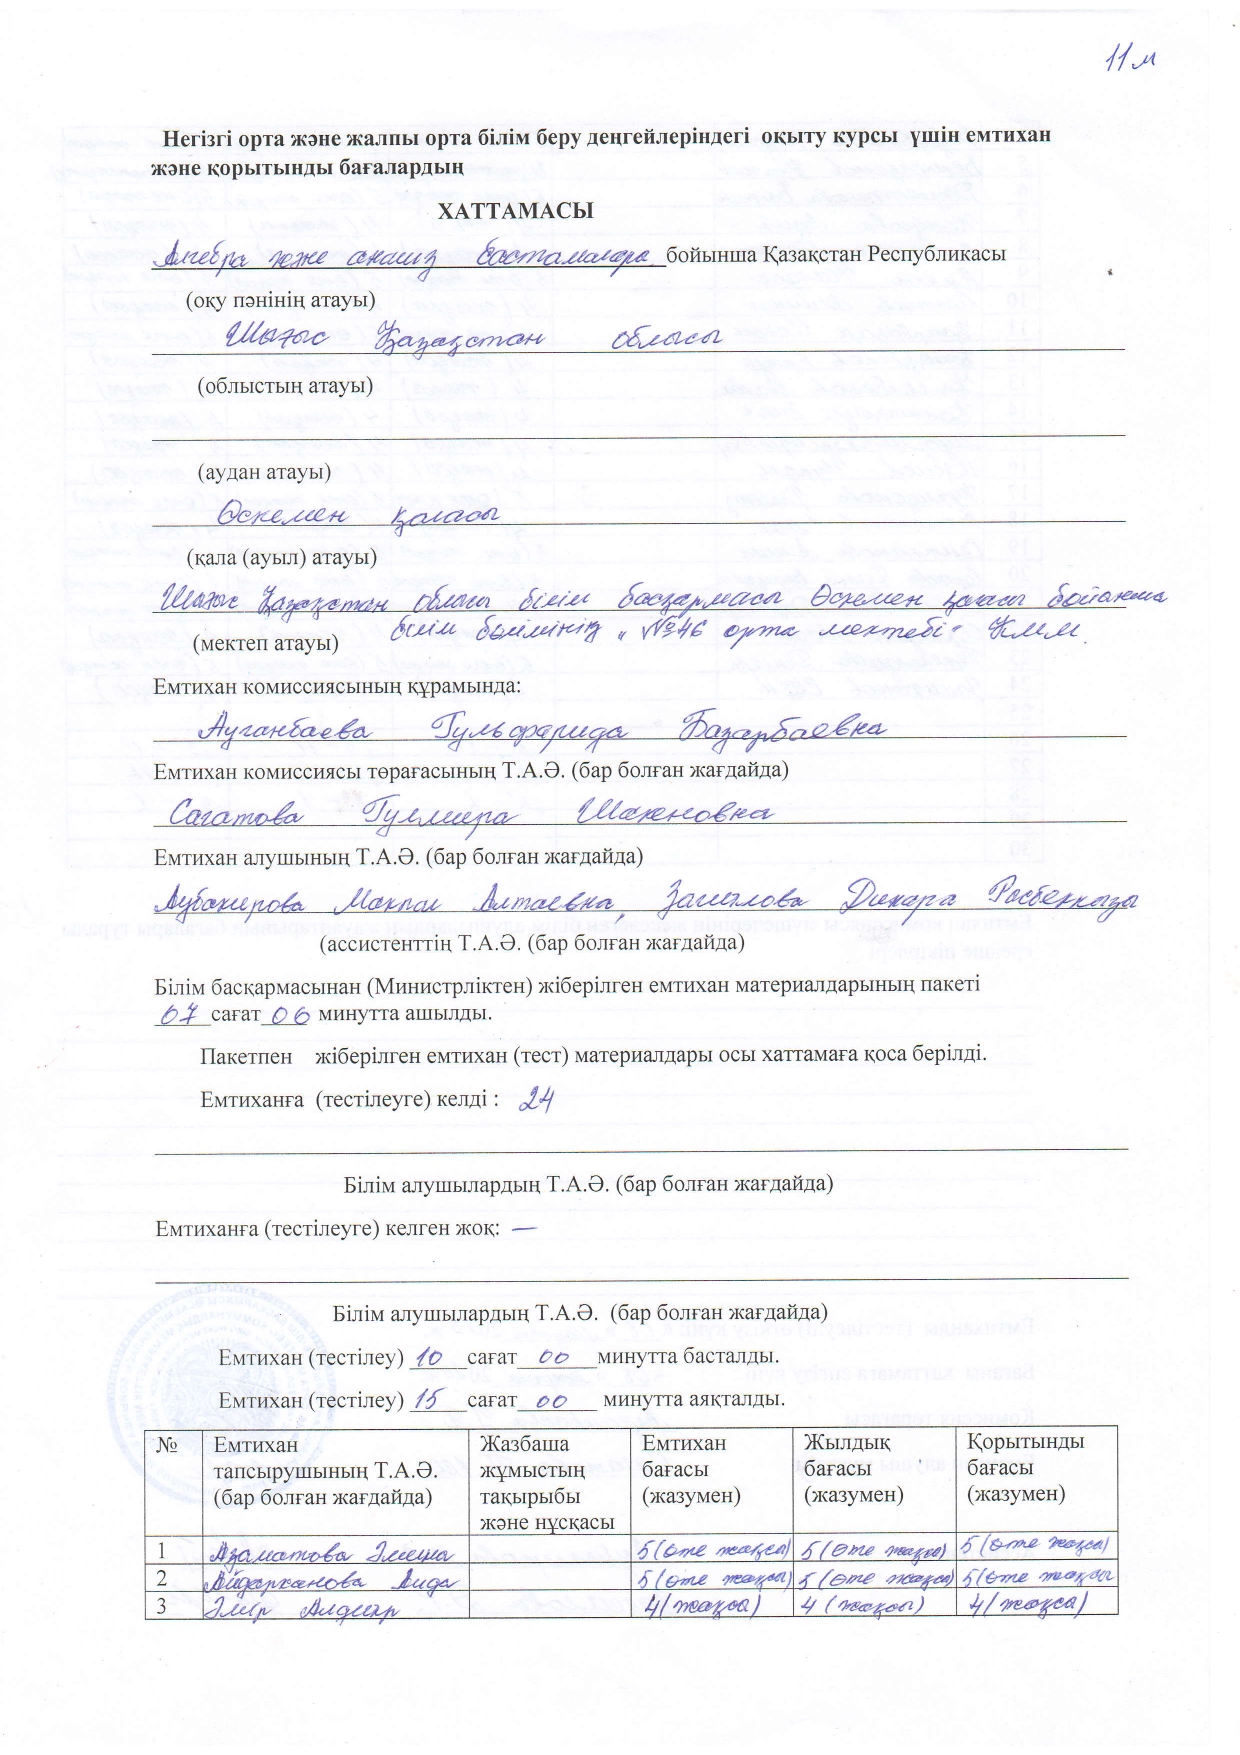 11м
Негізгі орта және жалпы орта білім беру деңгейлеріндегі оқыту курсы үшін емтихан
және қорытынды бағалардың
ХАТТАМАСЫ
Алгебра және анализ бастамалары бойынша Қазақстан Республикасы
(оқу пәнінің атауы)
Шығыс Қазақстан облысы
(облыстың атауы)
(аудан атауы)
Өскемен қаласы
(қала (ауыл) атауы)
Шығыс Қазақстан облысы білім басқармасы Өскемен қаласы бойынша
білім бөлімінің "№46 орта мектебі" КММ
(мектеп атауы)
Емтихан комиссиясының құрамында:
Ауганбаева Гульфарида Базарбаевна
Емтихан комиссиясы төрағасының Т.А.Ә. (бар болған жағдайда)
Сагатова Гулмира Шакеновна
Емтихан алушының Т.А.Ә. (бар болған жағдайда)
Аубакирова Макпал Алтаевна, Динара
(ассистенттің Т.А.Ә. (бар болған жағдайда)
Білім басқармасынан (Министрліктен) жіберілген емтихан материалдарының пакеті
07 сағат 06 минутта ашылды.
Пакетпен жіберілген емтихан (тест) материалдары осы хаттамаға қоса берілді.
Емтиханға (тестілеуге) келді : 24
Білім алушылардың Т.А.Ә. (бар болған жағдайда)
Емтиханға (тестілеуге) келген жоқ: —
Білім алушылардың Т.А.Ә. (бар болған жағдайда)
Емтихан (тестілеу) 10 сағат 00 минутта басталды.
Емтихан (тестілеу) 15 сағат 00 минутта аяқталды.
№ Емтихан тапсырушының Т.А.Ә. (бар болған жағдайда) Жазбаша жұмыстың тақырыбы және нұсқасы Емтихан бағасы (жазумен) Жылдық бағасы (жазумен) Қорытынды бағасы (жазумен)
1 Азаматова 5 (өте жақсы) 5 (өте жақсы) 5 (өте жақсы)
2 Айдарханова Аида 5 (өте жақсы) 5 (өте жақсы) 5 (өте жақсы
3 Әмір Алдияр 4 (жақсы) 4 (жақсы) 4 (жақсы)